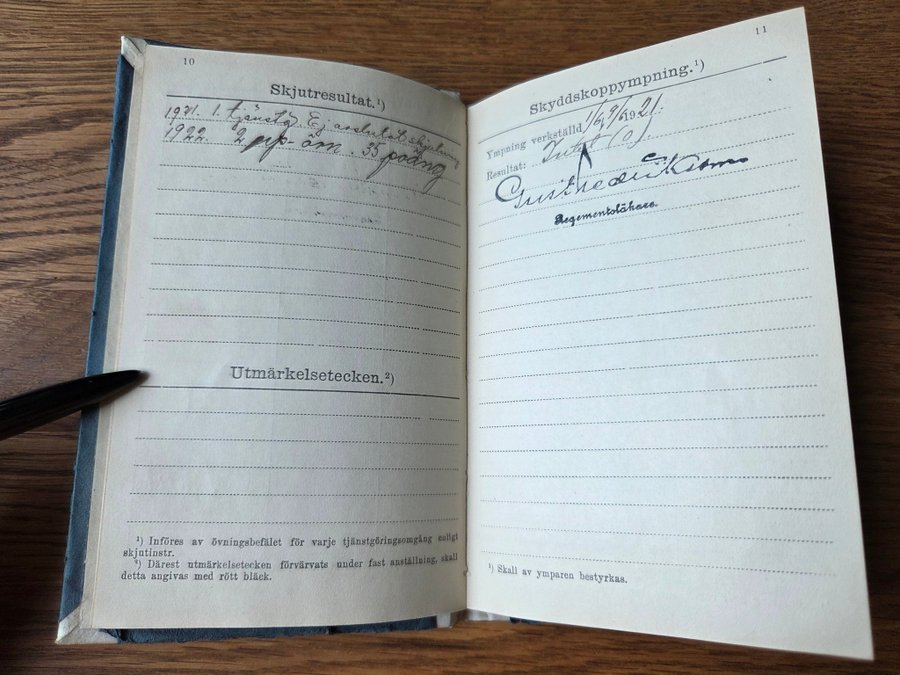 10
Skjutresultat.¹)
1921. 1. tjänstg. Ej avslutat skjutning
1922. 2 öm 35 poäng
Utmärkelsetecken.²)
¹) Införes av övningsbefälet för varje tjänstgöringsomgång enligt
skjutinstr.
²) Därest utmärkelsetecken förvärvats under fast anställning, skall
detta angivas med rött bläck.
11
Skyddskoppympning.¹)
Ympning verkställd 1921.
Resultat:
Regementsläkare.
¹) Skall av ymparen bestyrkas.